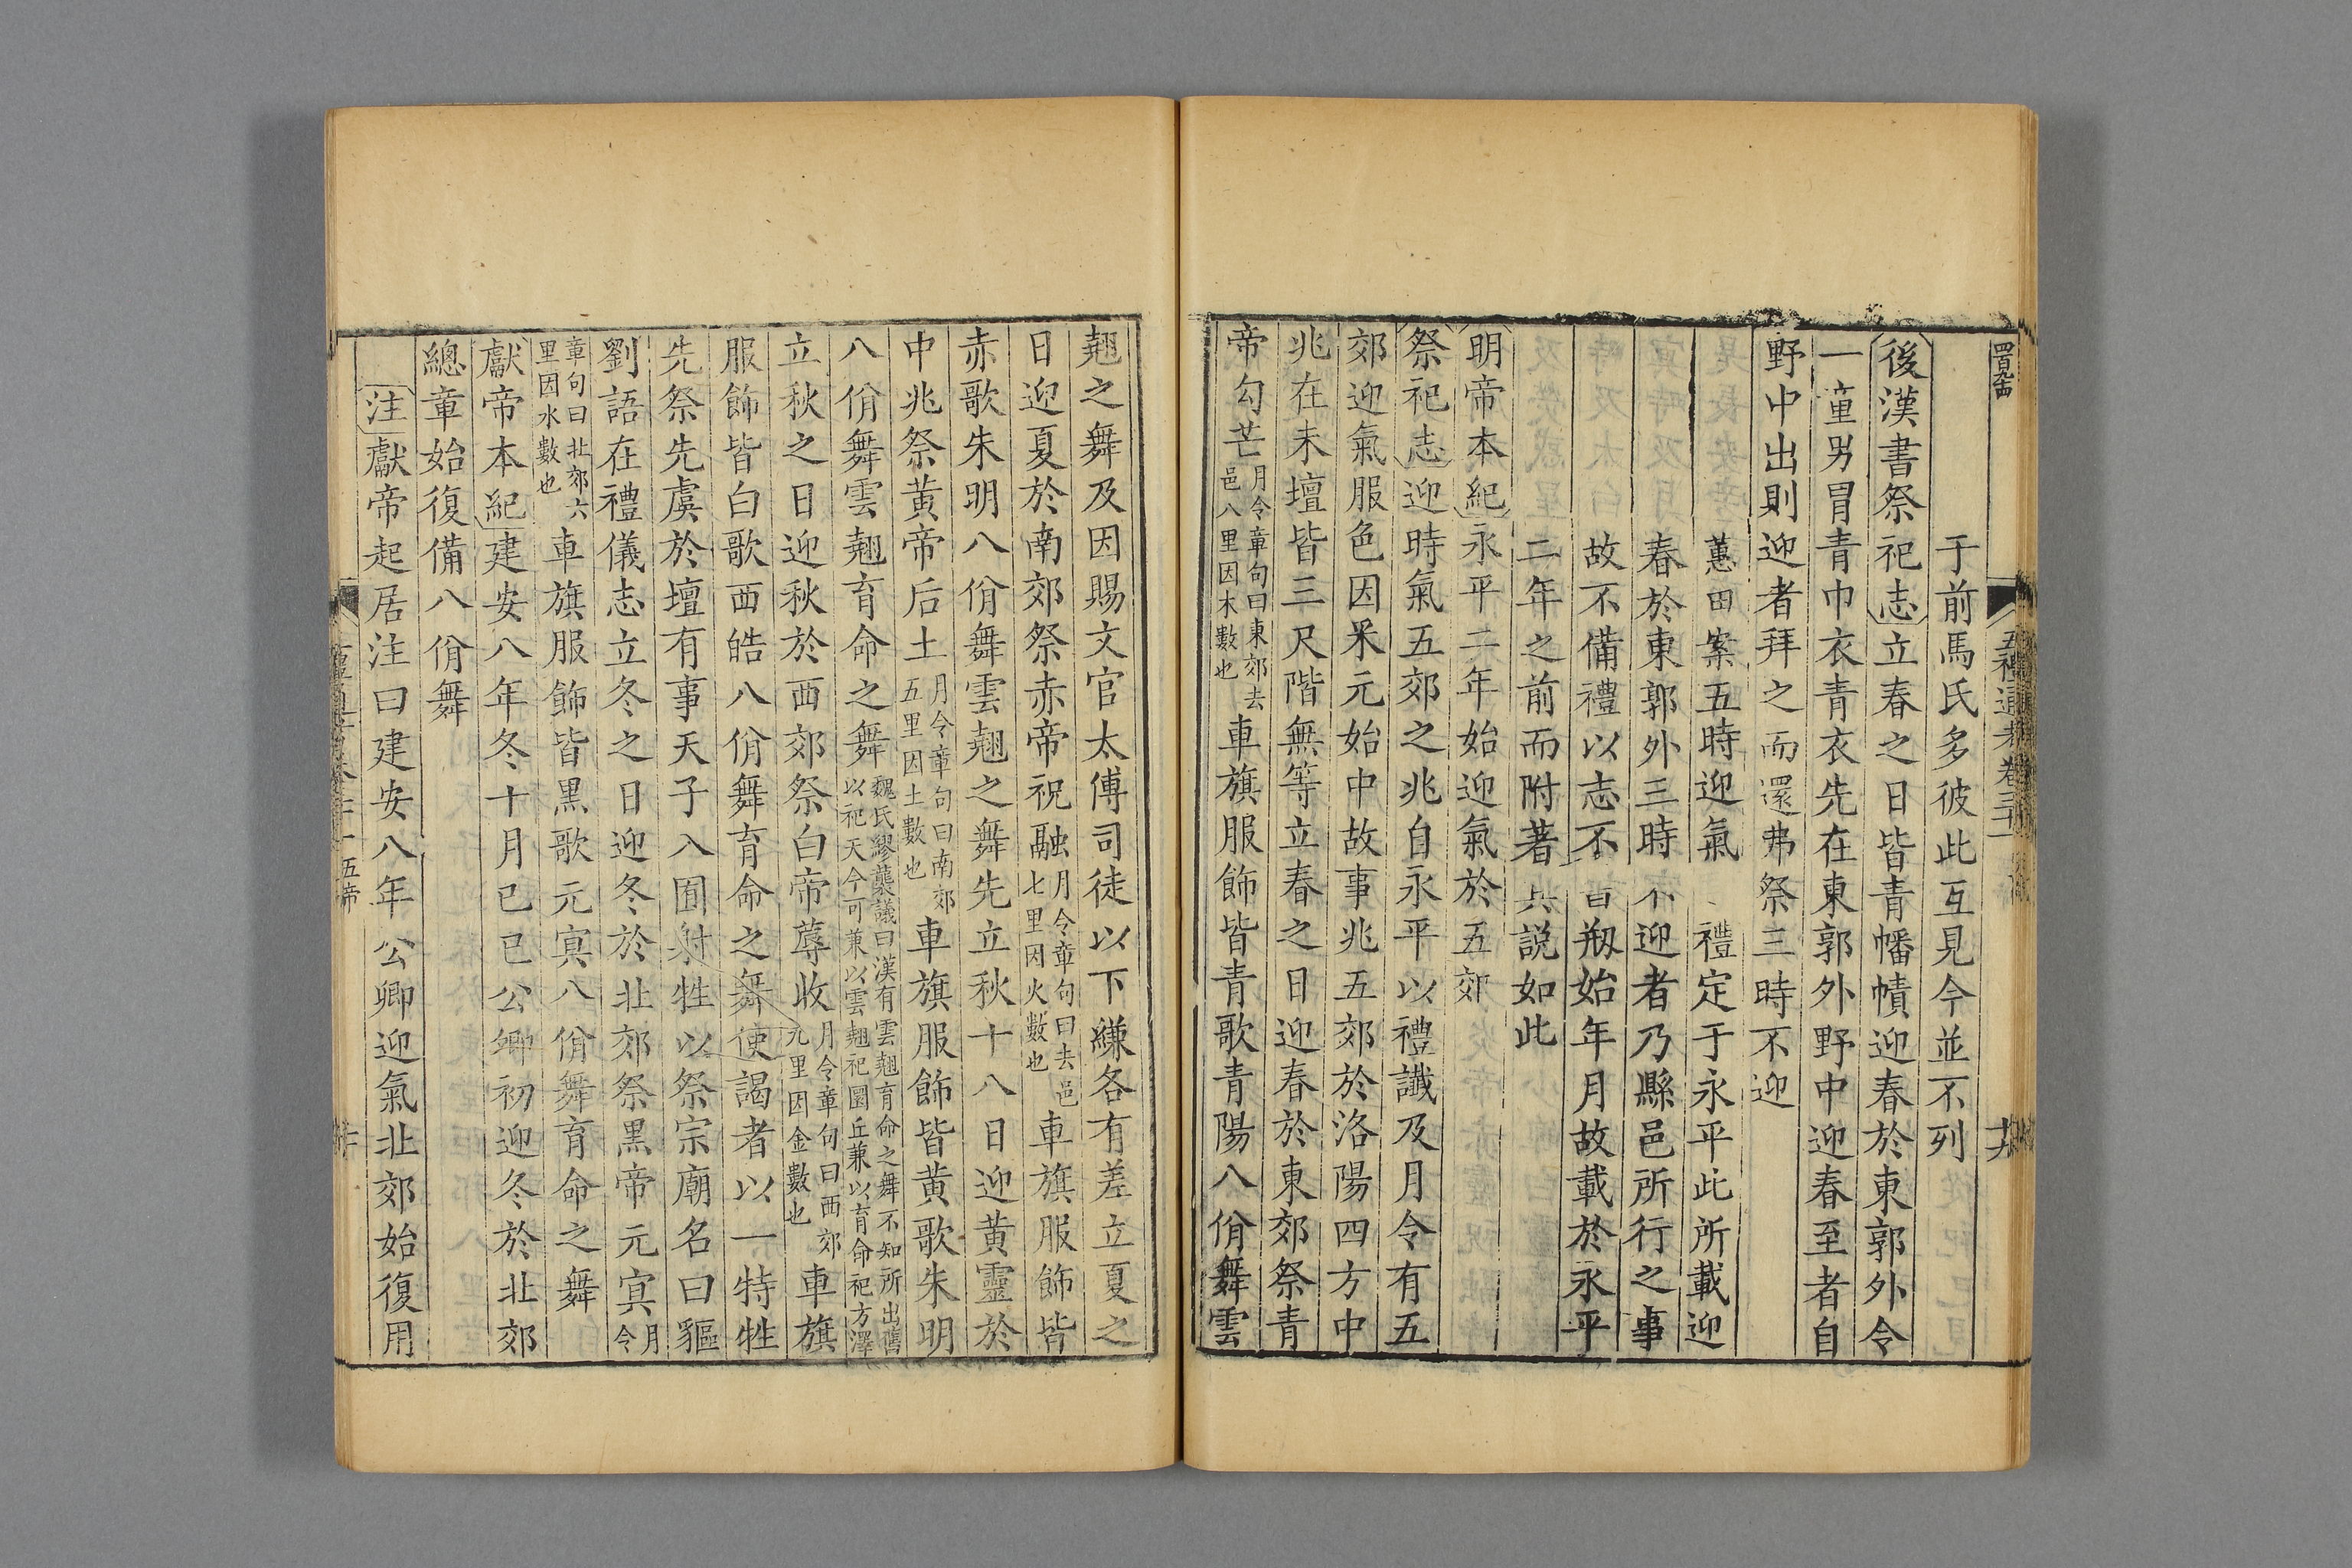 五禮通考卷三十一
于前馬氏多彼此互見今並不列
後漢書祭祀志立春之日皆青幡幘迎春於東郭外令
一童男冒青巾衣青衣先在東郭外野中迎春至者自
野中出則迎者拜之而還弗祭三時不迎
蕙田案五時迎氣禮定于永平此所載迎
春於東郭外三時不迎者乃縣邑所行之事
故不備禮以志不言剏始年月故載於永平
二年之前而附著其說如此
明帝本紀永平二年始迎氣於五郊
祭祀志迎時氣五郊之兆自永平以禮讖及月令有五
郊迎氣服色因采元始中故事兆五郊於洛陽四方中
兆在未壇皆三尺階無等立春之日迎春於東郊祭青
帝勾芒月令章句曰東郊去邑八里因木數也車旗服飾皆青歌青陽八佾舞雲
翹之舞及因賜文官太傅司徒以下縑各有差立夏之
日迎夏於南郊祭赤帝祝融月令章句曰去邑七里因火數也車旗服飾皆
赤歌朱明八佾舞雲翹之舞先立秋十八日迎黃靈於
中兆祭黃帝后土月令章句曰南郊五里因土數也車旗服飾皆黃歌朱明
八佾舞雲翹育命之舞魏氏繆襲議曰漢有雲翹育命之舞不知所出舊以祀天今可兼以雲翹祀圜丘兼以育命祀方澤
立秋之日迎秋於西郊祭白帝蓐收月令章句曰西郊九里因金數也車旗
服飾皆白歌西皓八佾舞育命之舞使謁者以一特牲
先祭先虞於壇有事天子入囿射牲以祭宗廟名曰貙
劉語在禮儀志立冬之日迎冬於北郊祭黑帝元冥月令
章句曰北郊六里因水數也車旗服飾皆黑歌元冥八佾舞育命之舞
獻帝本紀建安八年冬十月己巳公卿初迎冬於北郊
總章始復備八佾舞
注獻帝起居注曰建安八年公卿迎氣北郊始復用
五帝